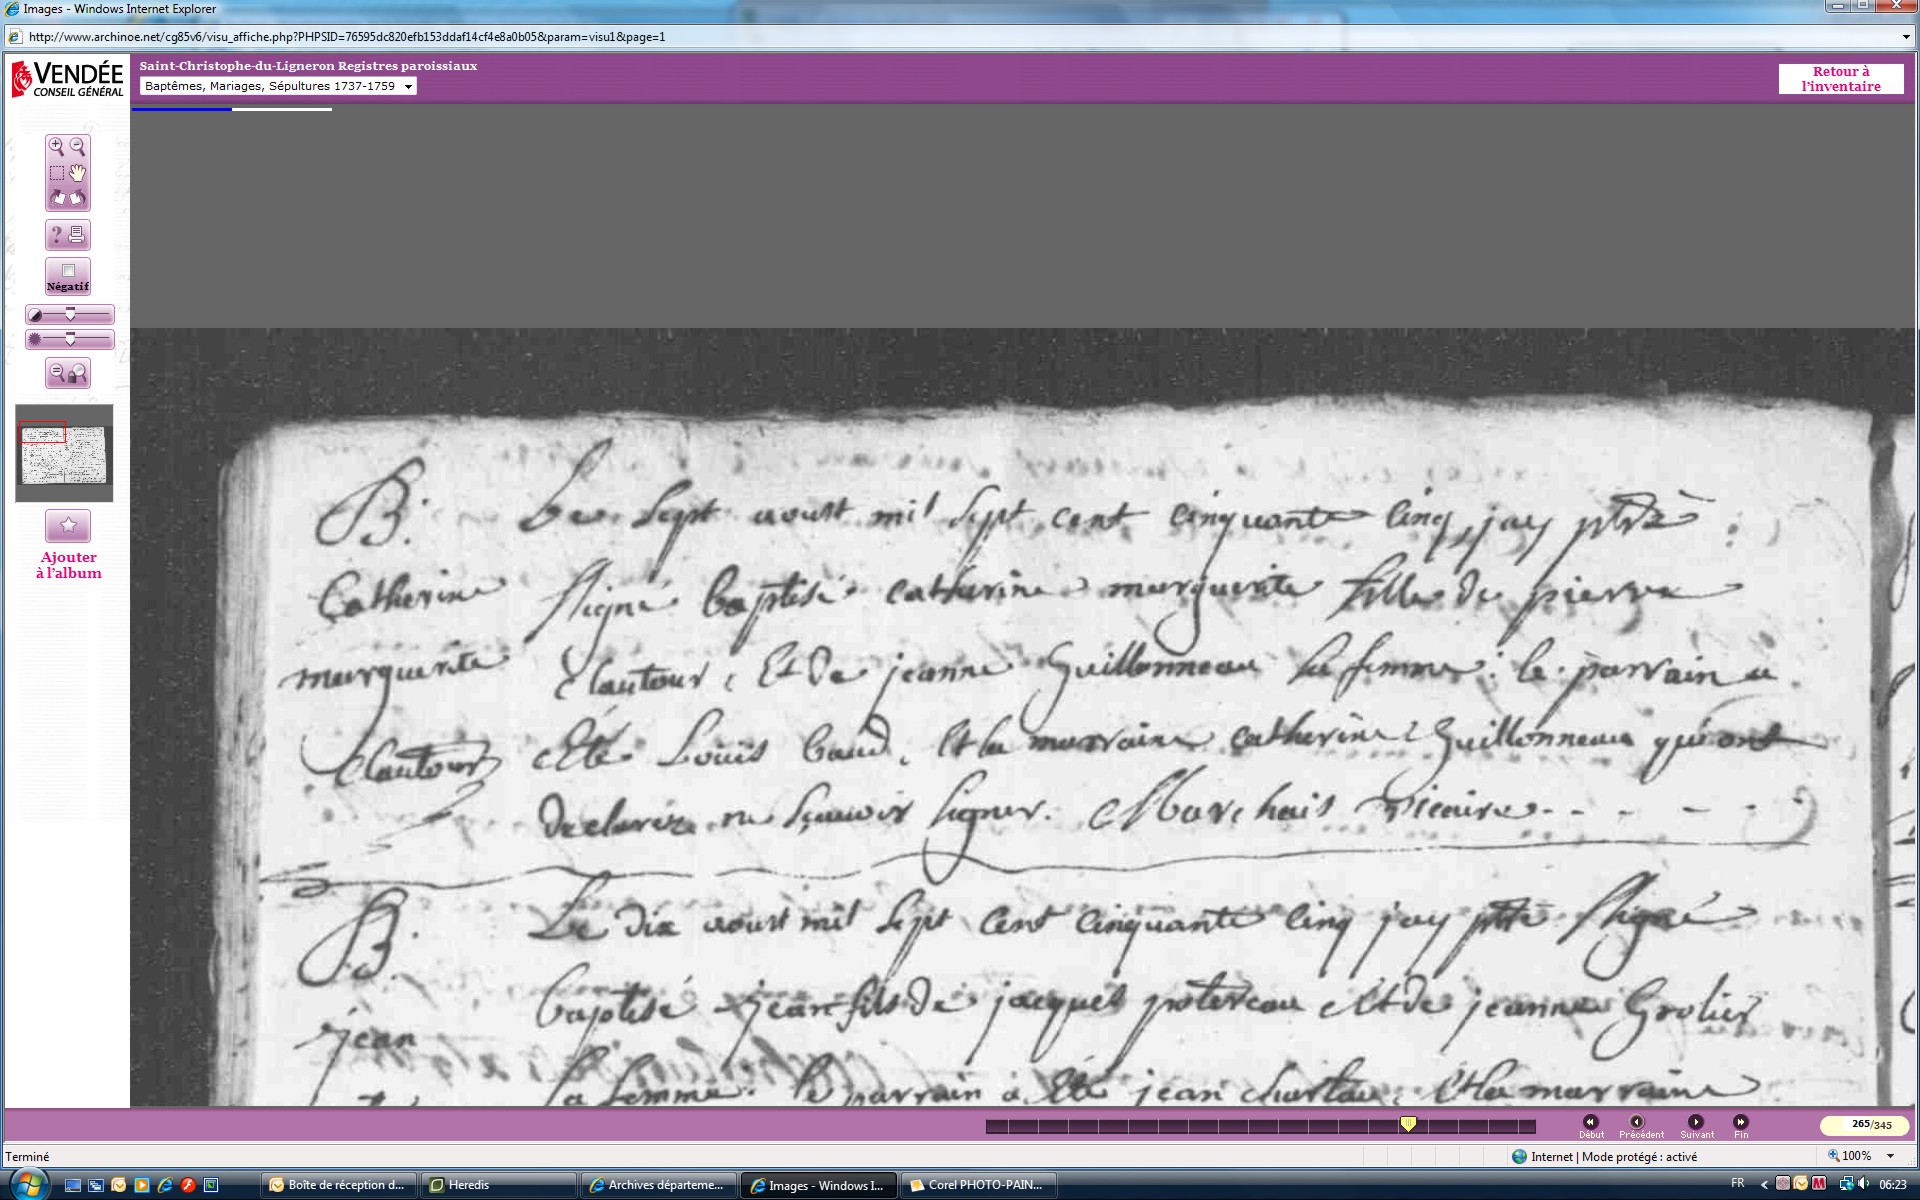 Images - Windows Internet Explorer
http://www.archinoe.net/cg85v6/visu_affiche.php?PHPSID=76595dc820efb153ddaf14cf4e8a0b05&param=visu1&page=1
VENDÉE
CONSEIL GÉNÉRAL
Saint-Christophe-du-Ligneron Registres paroissiaux
Baptêmes, Mariages, Sépultures 1737-1759
Retour à
l'inventaire
Négatif
Ajouter
à l'album
B.
Catherine
marguerite
Clautour
Le sept aoust mil sept cent cinquante cinq, jay ptre
signé baptisé catherine marguerite fille de pierre
Clautour, Et de jeanne Guillonneau sa femme: le parrain a
Eté Louis baud, Et la marraine catherine Guillonneau qui ont
declarez ne sçavoir signer. Marchais vicaire - - - - -
B.
jean
Le dix aoust mil sept cent cinquante cinq jay ptre signé
baptisé jean fils de jacques potereau Et de jeanne Grolier
sa femme. le parrain à Eté jean charlau, Et la marraine
Début
Précédent
Suivant
Fin
265/345
Terminé
Internet | Mode protégé : activé
100%
Boîte de réception d...
Heredis
Archives départeme...
Images - Windows I...
Corel PHOTO-PAIN...
FR
06:23